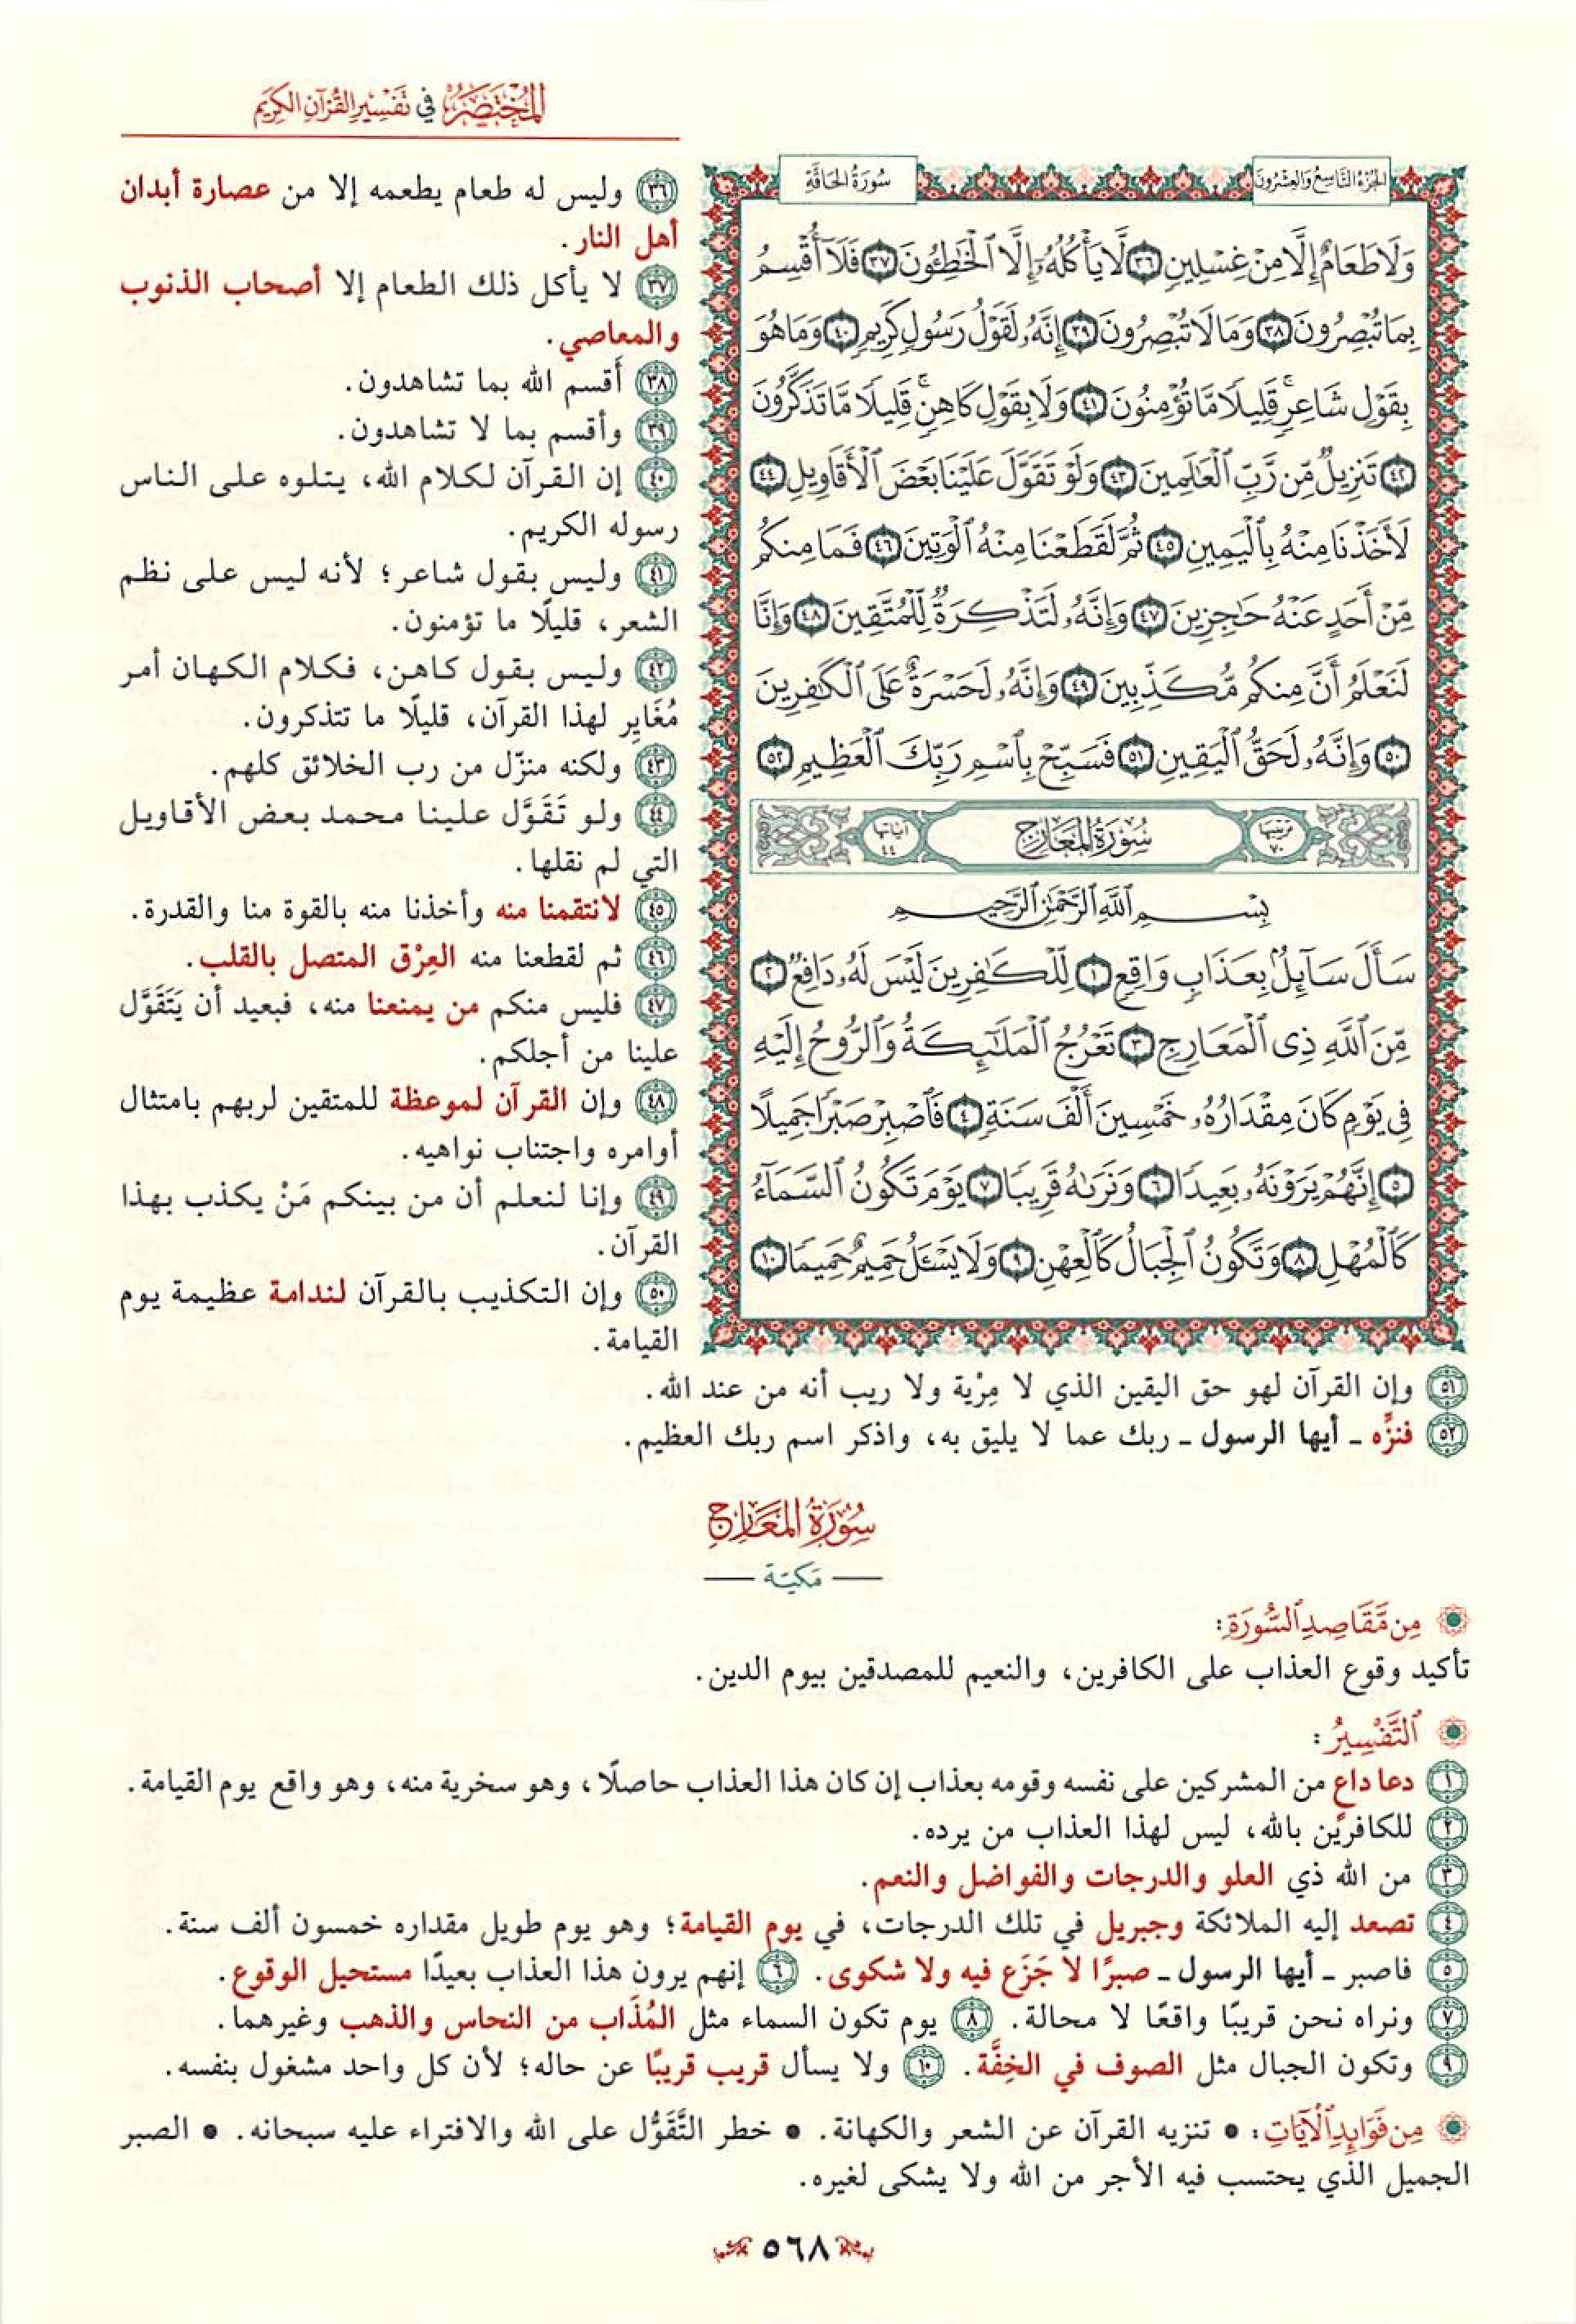 المُخْتَصَرُ في تَفْسِيرِ القُرْآنِ الكَرِيمِ
الجُزْءُ التَّاسِعُ وَالعِشْرُونَ
سُورَةُ الحَاقَّةِ
وَلَا طَعَامٌ إِلَّا مِنْ غِسْلِينٍ ٣٦ لَّا يَأْكُلُهُۥٓ إِلَّا ٱلْخَٰطِـُٔونَ ٣٧ فَلَآ أُقْسِمُ
بِمَا تُبْصِرُونَ ٣٨ وَمَا لَا تُبْصِرُونَ ٣٩ إِنَّهُۥ لَقَوْلُ رَسُولٍ كَرِيمٍ ٤٠ وَمَا هُوَ
بِقَوْلِ شَاعِرٍۚ قَلِيلًا مَّا تُؤْمِنُونَ ٤١ وَلَا بِقَوْلِ كَاهِنٍۚ قَلِيلًا مَّا تَذَكَّرُونَ
٤٢ تَنزِيلٌ مِّن رَّبِّ ٱلْعَٰلَمِينَ ٤٣ وَلَوْ تَقَوَّلَ عَلَيْنَا بَعْضَ ٱلْأَقَاوِيلِ ٤٤
لَأَخَذْنَا مِنْهُ بِٱلْيَمِينِ ٤٥ ثُمَّ لَقَطَعْنَا مِنْهُ ٱلْوَتِينَ ٤٦ فَمَا مِنكُم
مِّنْ أَحَدٍ عَنْهُ حَٰجِزِينَ ٤٧ وَإِنَّهُۥ لَتَذْكِرَةٌ لِّلْمُتَّقِينَ ٤٨ وَإِنَّا
لَنَعْلَمُ أَنَّ مِنكُم مُّكَذِّبِينَ ٤٩ وَإِنَّهُۥ لَحَسْرَةٌ عَلَى ٱلْكَٰفِرِينَ
٥٠ وَإِنَّهُۥ لَحَقُّ ٱلْيَقِينِ ٥١ فَسَبِّحْ بِٱسْمِ رَبِّكَ ٱلْعَظِيمِ ٥٢
ترتيبها ٧٠ سُورَةُ المَعَارِجِ آياتها ٤٤
بِسْمِ ٱللَّهِ ٱلرَّحْمَٰنِ ٱلرَّحِيمِ
سَأَلَ سَآئِلٌۢ بِعَذَابٍ وَاقِعٍ ١ لِّلْكَٰفِرِينَ لَيْسَ لَهُۥ دَافِعٌ ٢
مِّنَ ٱللَّهِ ذِى ٱلْمَعَارِجِ ٣ تَعْرُجُ ٱلْمَلَٰٓئِكَةُ وَٱلرُّوحُ إِلَيْهِ
فِى يَوْمٍ كَانَ مِقْدَارُهُۥ خَمْسِينَ أَلْفَ سَنَةٍ ٤ فَٱصْبِرْ صَبْرًا جَمِيلًا
٥ إِنَّهُمْ يَرَوْنَهُۥ بَعِيدًا ٦ وَنَرَىٰهُ قَرِيبًا ٧ يَوْمَ تَكُونُ ٱلسَّمَآءُ
كَٱلْمُهْلِ ٨ وَتَكُونُ ٱلْجِبَالُ كَٱلْعِهْنِ ٩ وَلَا يَسْـَٔلُ حَمِيمٌ حَمِيمًا ١٠
٣٦ وليس له طعام يطعمه إلا من عصارة أبدان
أهل النار.
٣٧ لا يأكل ذلك الطعام إلا أصحاب الذنوب
والمعاصي.
٣٨ أَقسم الله بما تشاهدون.
٣٩ وأقسم بما لا تشاهدون.
٤٠ إن القرآن لكلام الله، يتلوه على الناس
رسوله الكريم.
٤١ وليس بقول شاعر؛ لأنه ليس على نظم
الشعر، قليلًا ما تؤمنون.
٤٢ وليس بقول كاهن، فكلام الكهان أمر
مُغَايِر لهذا القرآن، قليلًا ما تتذكرون.
٤٣ ولكنه منزّل من رب الخلائق كلهم.
٤٤ ولو تَقَوَّل علينا محمد بعض الأقاويل
التي لم نقلها.
٤٥ لانتقمنا منه وأخذنا منه بالقوة منا والقدرة.
٤٦ ثم لقطعنا منه العِرْق المتصل بالقلب.
٤٧ فليس منكم من يمنعنا منه، فبعيد أن يَتَقَوَّل
علينا من أجلكم.
٤٨ وإن القرآن لموعظة للمتقين لربهم بامتثال
أوامره واجتناب نواهيه.
٤٩ وإنا لنعلم أن من بينكم مَنْ يكذب بهذا
القرآن.
٥٠ وإن التكذيب بالقرآن لندامة عظيمة يوم
القيامة.
٥١ وإن القرآن لهو حق اليقين الذي لا مِرْية ولا ريب أنه من عند الله.
٥٢ فنزِّه ـ أيها الرسول ـ ربك عما لا يليق به، واذكر اسم ربك العظيم.
سُورَةُ المَعَارِجِ
— مَكِيَّة —
مِن مَّقَاصِدِ ٱلسُّورَةِ:
تأكيد وقوع العذاب على الكافرين، والنعيم للمصدقين بيوم الدين.
ٱلتَّفْسِيرُ:
١ دعا داعٍ من المشركين على نفسه وقومه بعذاب إن كان هذا العذاب حاصلًا، وهو سخرية منه، وهو واقع يوم القيامة.
٢ للكافرين بالله، ليس لهذا العذاب من يرده.
٣ من الله ذي العلو والدرجات والفواضل والنعم.
٤ تصعد إليه الملائكة وجبريل في تلك الدرجات، في يوم القيامة؛ وهو يوم طويل مقداره خمسون ألف سنة.
٥ فاصبر ـ أيها الرسول ـ صبرًا لا جَزَع فيه ولا شكوى. ٦ إنهم يرون هذا العذاب بعيدًا مستحيل الوقوع.
٧ ونراه نحن قريبًا واقعًا لا محالة. ٨ يوم تكون السماء مثل المُذَاب من النحاس والذهب وغيرهما.
٩ وتكون الجبال مثل الصوف في الخِفَّة. ١٠ ولا يسأل قريب قريبًا عن حاله؛ لأن كل واحد مشغول بنفسه.
مِن فَوَائِدِ ٱلْآيَاتِ: • تنزيه القرآن عن الشعر والكهانة. • خطر التَّقَوُّل على الله والافتراء عليه سبحانه. • الصبر
الجميل الذي يحتسب فيه الأجر من الله ولا يشكى لغيره.
٥٦٨